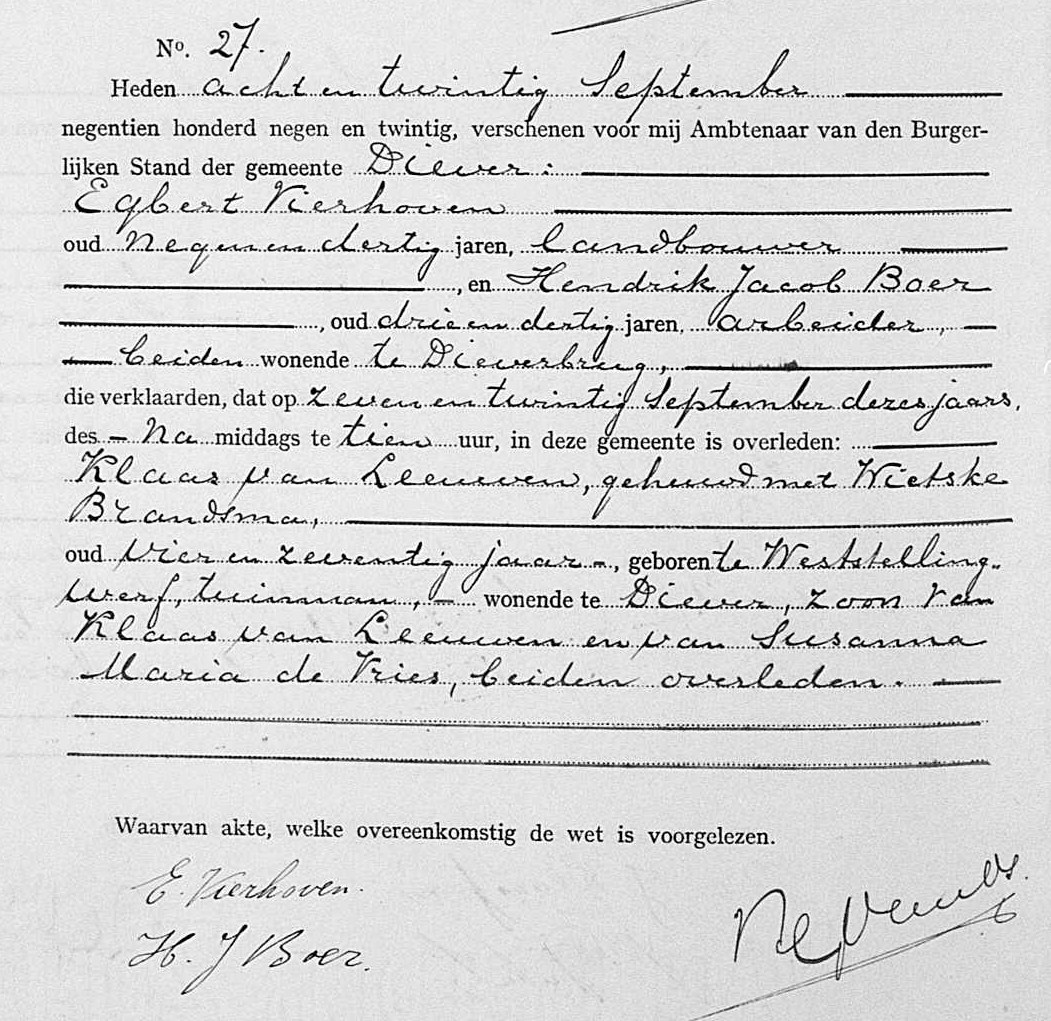 No. 27.
Heden acht en twintig September
negentien honderd negen en twintig, verschenen voor mij Ambtenaar van den Burger-
lijken Stand der gemeente Diever:
Egbert Vierhoven
oud negen en dertig jaren, landbouwer
, en Hendrik Jacob Boer
, oud drie en dertig jaren, arbeider,
beiden wonende te Dieverbrug,
die verklaarden, dat op zeven en twintig September dezes jaars,
des na middags te tien uur, in deze gemeente is overleden:
Klaas van Leeuwen, gehuwd met Wietske
Brandsma,
oud vier en zeventig jaar, geboren te Weststelling-
werf, tuinman, wonende te Diever, zoon van
Klaas van Leeuwen en van Susanna
Maria de Vries, beiden overleden.
Waarvan akte, welke overeenkomstig de wet is voorgelezen.
E. Vierhoven.
H. J Boer.